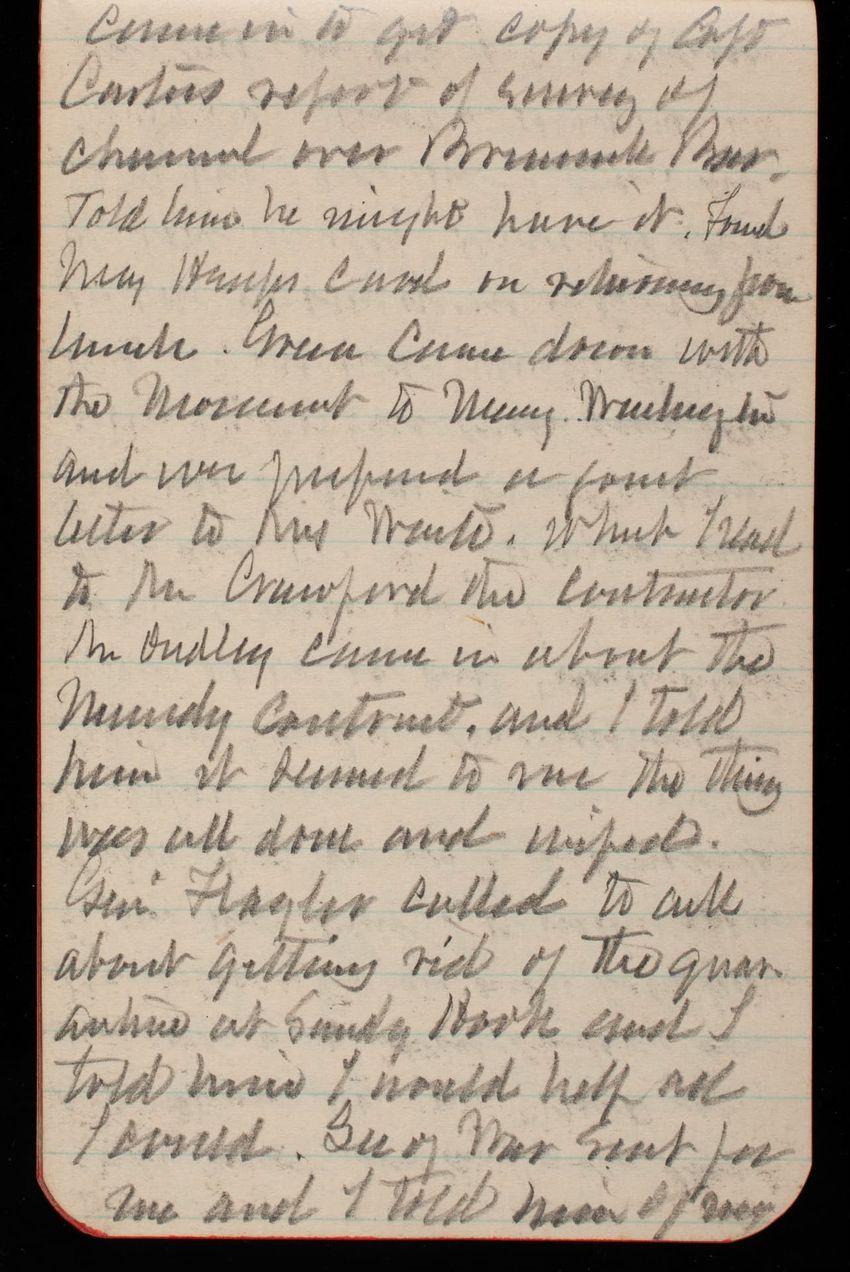 came in to get copy of Capt
Carters report of survey of
channel over Brunswick Bar.
Told him he might have it. Found
May Heaps card on returning from
lunch. Green came down with
the Monument to Mary Washington
and we prepared a joint
letter to Mrs Waite. which I read
to Mr Crawford the contractor
Mr Dudley came in about the
Mundy Contract. and I told
him it seemed to me the thing
was all done and wiped.
Genl Flagler called to ask
about getting rid of the quar
antine at Sandy Hook and I
told him I would help all
I could. Sec of War sent for
me and I told him of my